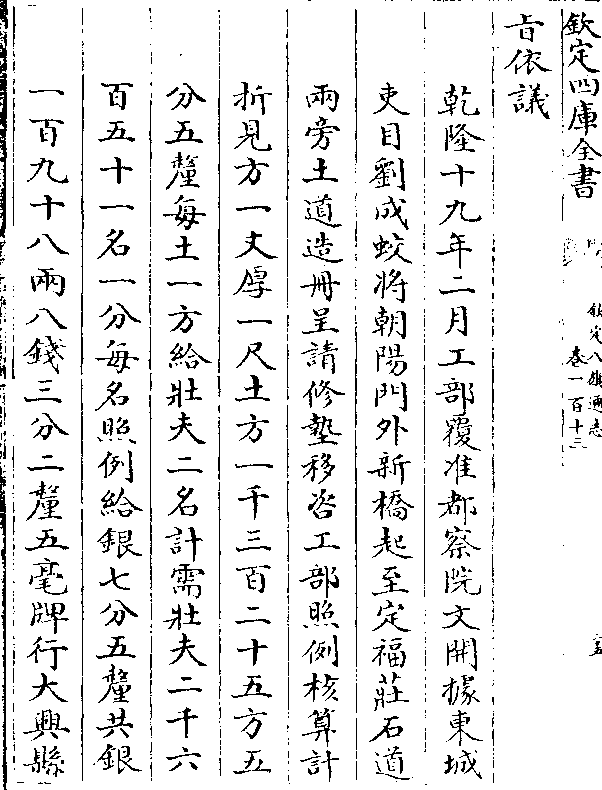 欽定四庫全書
欽定八旗通志
卷一百十三
旨依議
乾隆十九年二月工部覆准都察院文開據東城
吏目劉成蛟將朝陽門外新橋起至定福莊石道
兩旁土道造冊呈請修墊移咨工部照例核算計
折見方一丈厚一尺土方一千三百二十五方五
分五釐每土一方給壯夫二名計需壯夫二千六
百五十一名一分每名照例給銀七分五釐共銀
一百九十八兩八錢三分二釐五毫牌行大興縣